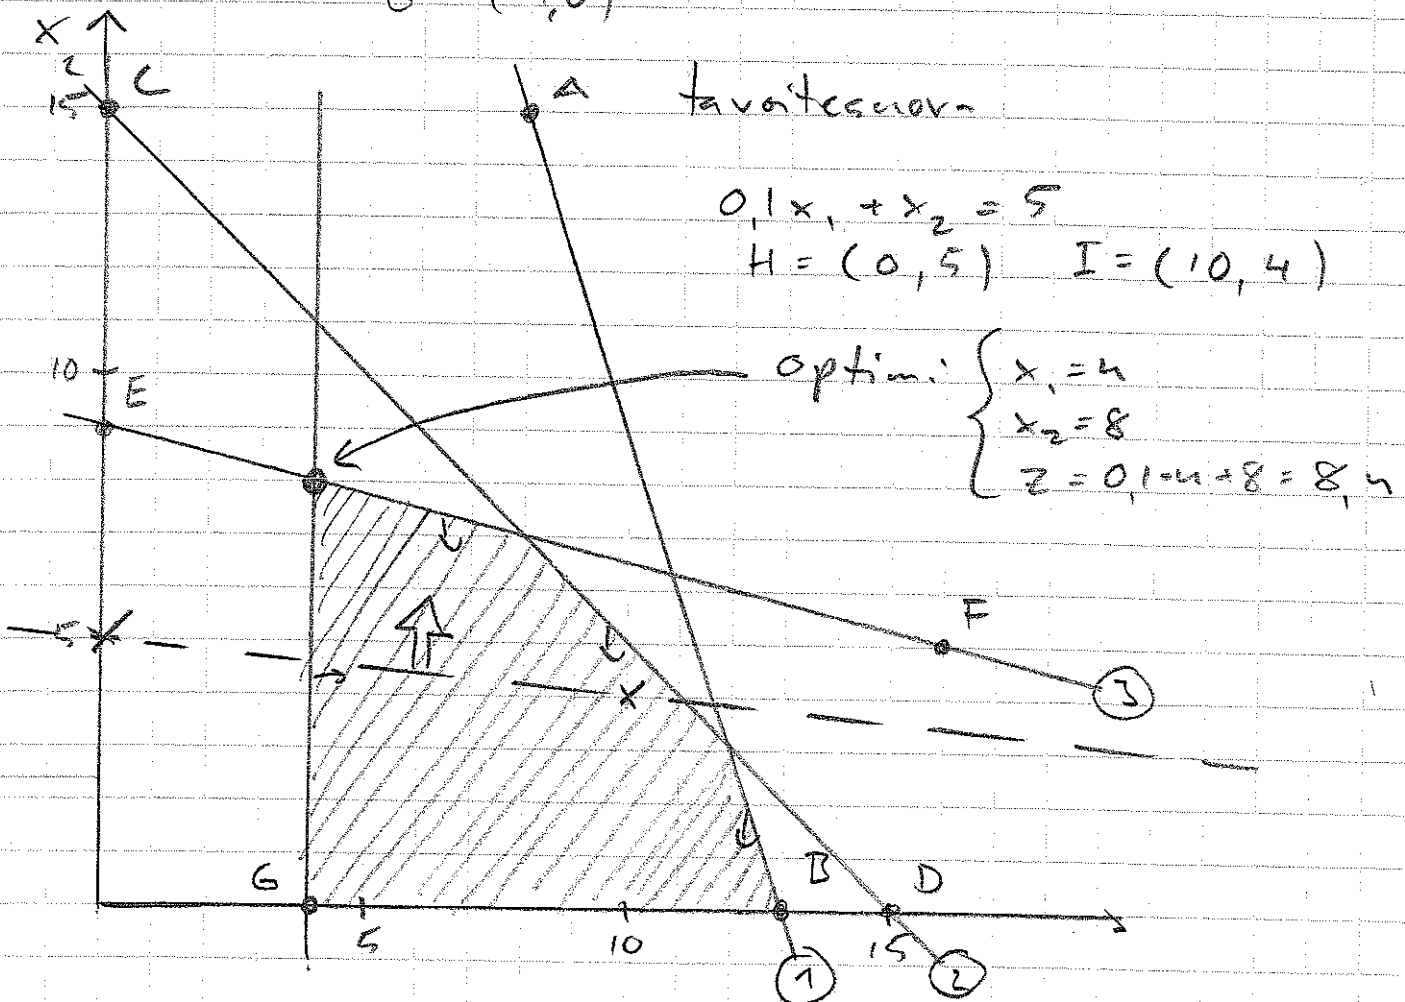 x₂
15
C
A
tavoitesuora
0,1x₁ + x₂ = 5
H = (0,5) I = (10,4)
10
E
Optimi: { x₁ = 4
x₂ = 8
Z = 0,1·4+8 = 8,4
5
F
3
G
B
D
5
10
15
1
2